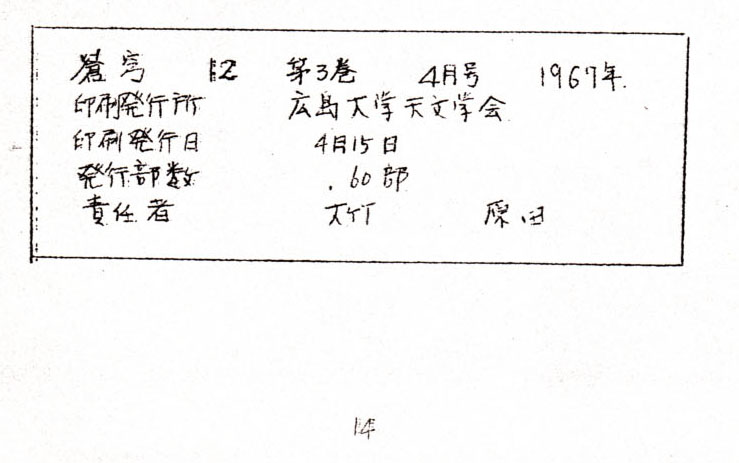 蒼穹 12 第3巻 4月号 1967年.
印刷発行所 広島大学天文学会
印刷発行日 4月15日
発行部数 60部
責任者 大竹 原田
14